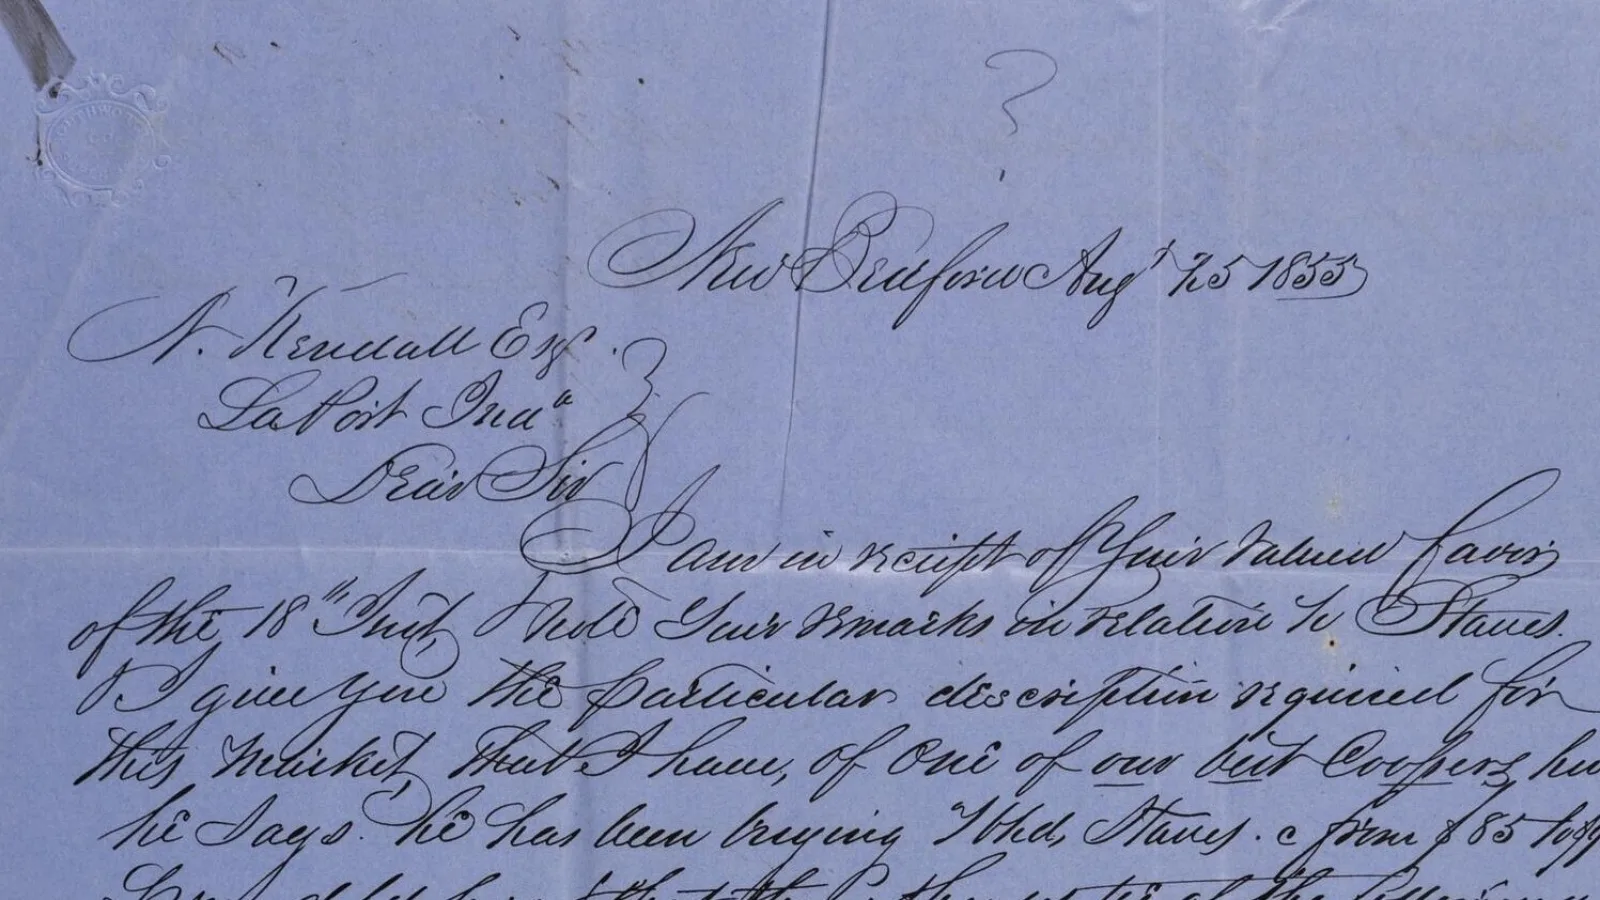 ?
New Bedford Augt 25 1855
N. Kendall Esq.
LaPort Inda
Dear Sir
I am in receipt of Your valued favor
of the 18th Inst, & note Your remarks in relation to Staves.
& I give you the particular description required for
this Market, that I have, of one of our best Coopers,
he says. he has been buying Hhd, Staves. from $85 to